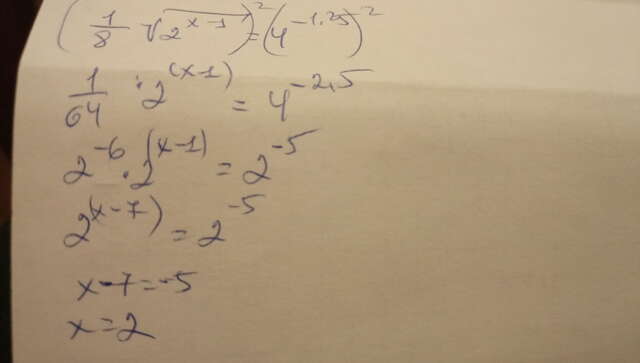 (1/8 √2^(x-1))^2 = (4^-1,25)^2
1/64 · 2^(x-1) = 4^-2,5
2^-6 · 2^(x-1) = 2^-5
2^(x-7) = 2^-5
x-7=-5
x=2